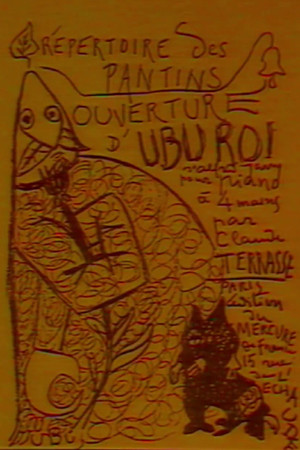 RÉPERTOIRE DES
PANTINS
OUVERTURE
D'UBU ROI
d'Alfred Jarry
pour piano
à 4 mains
par
Claude
TERRASSE
PARIS
édition
du
MERCURE
de France
15 rue
de l'
ECHAUDÉ